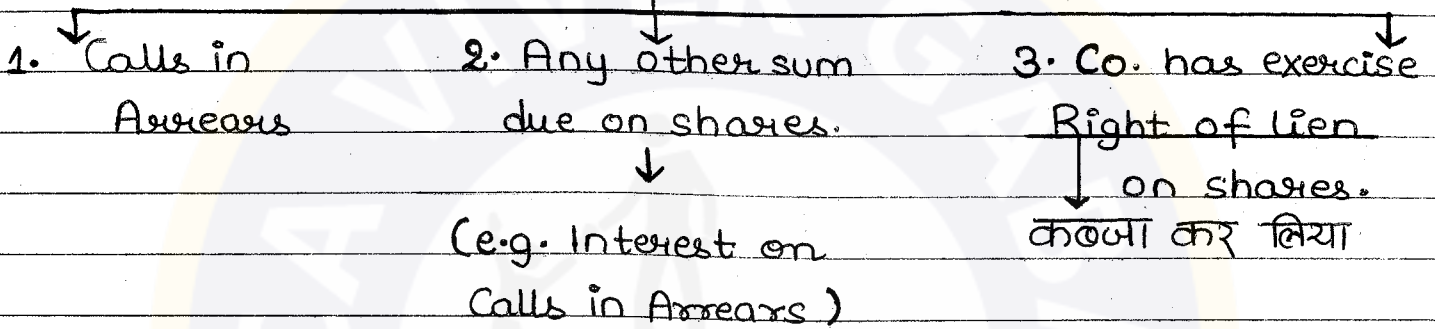 1. Calls in Arrears
2. Any other sum due on shares.
(e.g. Interest on Calls in Arrears)
3. Co. has exercise Right of lien on shares.
कब्जा कर लिया